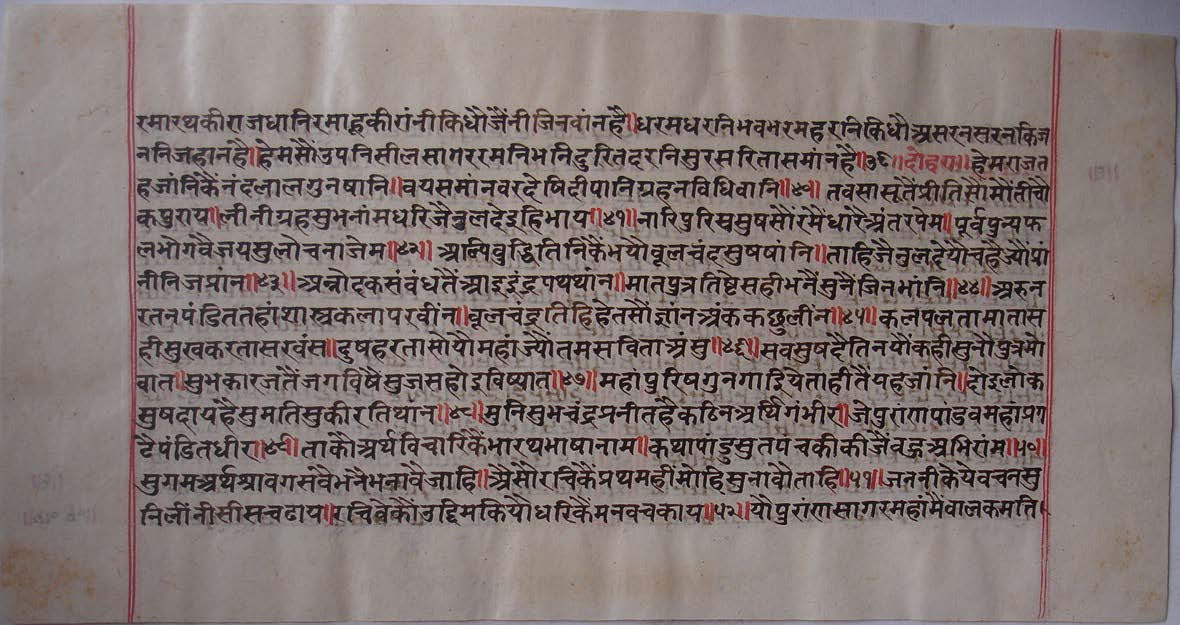 रमारथकीराजधानिरमाहकीरांनीकिधौजैंनीजिनवांनहै॥धरमधरनिभवभरमहरनिकिधौअसरनसरनकिज
ननिजहानहै॥हेमसौंउपनिसीलसागररमनिभनिदुरितदरनिसुरसरितासमांनहै॥७६॥दोहरा॥हेमराजत
हजांनिकैंनंदलालगुनषानि॥वयसमांनवरदेषिदीपानिग्रहनविधिवानि॥४०॥तवसासूतैंप्रीति
कपुराय॥लीनीग्रहसुभनांमधरिजैनुलदेइहिभाय॥४१॥नारिपुरिससुषसौंरमैंधारिअंतरपेम॥पूर्वपुन्यफ
लभोगवैजयसुलोचनाजेम॥४२॥अल्पिवुद्धितिनिकैंभयौवूलचंदसुषषांनि॥ताहिजैनुलदेयौंचहैज्यौंप्रां
नीनिजप्रांन॥४३॥अन्नोदकसंवंधतैंआइइंद्रपथथांन॥मातपुत्रतिष्टेसहीभनैंसुनैंजिनभांनि॥४४॥अरुन
रतनपंडिततहांशास्त्रकलापरवींन॥वूलचंद्रतिहिहेतसौंज्ञांनअंककछुलींन॥४५॥कलपलतामातास
हीसुखकरतासरवंस॥दुषहरतासोयौमहांज्यौंतमसविताअंसु॥४६॥सवसुषदैतिनयौंकहीसुनौपुत्रमो
वात॥सुभकारजतैंजगविषैसुजसहोइविष्यात॥४७॥महांपुरिषगुनगाइियेताहीतैंयहजांनि॥दोइलोक
सुषदायहैसुमतिसुकीरतिथांन॥४८॥मुनिसुभचंद्रप्रनीतहैकठिनअर्थिगंभीर॥जेपुरांणपांडवमहांप्रग
टैपंडितधीर॥४९॥ताकौअर्थविचारिकैंभारथभाषानाम॥कथापांडुसुतपंचकीकीजैवहुअभिरांम॥५०॥
सुगमअर्थश्रावगसंवैभनैभनावैजाहि॥औसौरचिकैंप्रथमहींमोहिसुनावौताहि॥५१॥जननीकेयेवचनसु
निलींनीसीसचढाय॥रचिवेकौंउद्दिमकियौधरिकैंमनवचकाय॥५२॥यौपुरांणसागरमहांमैंवालकमति